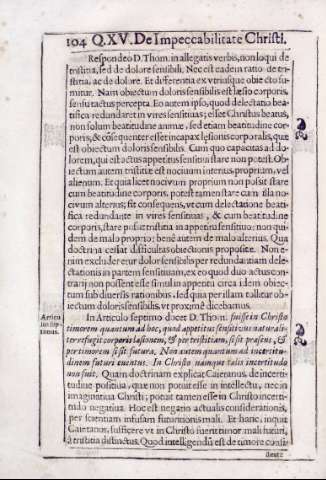 104 Q.XV. De Impeccabilitate Christi.
Respondeo D. Thom. in allegatis verbis, non loqui de
tristitia, sed de dolore sensibili. Nec est eadem ratio de tri-
stitia, ac de dolore. Et differentia ex vtriusque obiecto su-
mitur. Nam obiectum doloris sensibilis est læsio corporis,
sensu tactus percepta. Eo autem ipso, quod delectatio bea-
tifica redundaret in vires sensitiuas; esset Christus beatus,
non solum beatitudine animæ, sed etiam beatitudine cor-
poris, & consequenter esset incapax læsionis corporalis, quæ
est obiectum doloris sensibilis. Cum quo capacitas ad do-
lorem, qui est actus appetitus sensitiui stare non potest. Ob-
iectum autem tristitiæ est nociuum internus, proprium, vel
alienum. Et quia licet nociuum proprium non possit stare
cum beatitudine corporis, potest tamen stare cum illa no-
ciuum alterius; fit consequens, vt cum delectatione beati-
fica redundante in vires sensitiuas, & cum beatitudine
corporis, stare possit tristitia in appetitu sensitiuo: non qui-
dem de malo proprio; bene autem de malo alterius. Qua
doctrina cessat difficultas obiectionis propositæ. Non e-
nim excluderetur dolor sensibilis per redundantiam dele-
ctationis in partem sensitiuam, ex eo quod duo actus con-
trarij non possent esse simul in appetitu circa idem obie-
ctum sub diuersis rationibus: sed quia per illam tollitur ob-
iectum doloris sensibilis, vt proximè dicebamus.
Articu
lus sep-
timus.
In Articulo septimo docet D. Thom. fuisse in Christo
timorem quantum ad hoc, quod appetitus sensitiuus naturali-
ter refugit corporis læsionem, & per tristitiam, si sit præsens, &
per timorem si sit futura. Non autem quantum ad incertitu-
dinem futuri euentus. In Christo namque talis incertitudo
non fuit. Quam doctrinam explicat Caietanus, de incerti-
tudine positiua, quæ non potuit esse in intellectu, nec in
imaginatiua Christi; potuit tamen esse in Christo incerti-
tudo negatiua. Hoc est negatio actualis considerationis,
per scientiam infusam futuritionis mali. Et hanc, inquit
Caietanus, sufficere vt in Christo fuerit timor mali futuri,
à tristitia distinctus. Quod intelligendū est de timore consi-